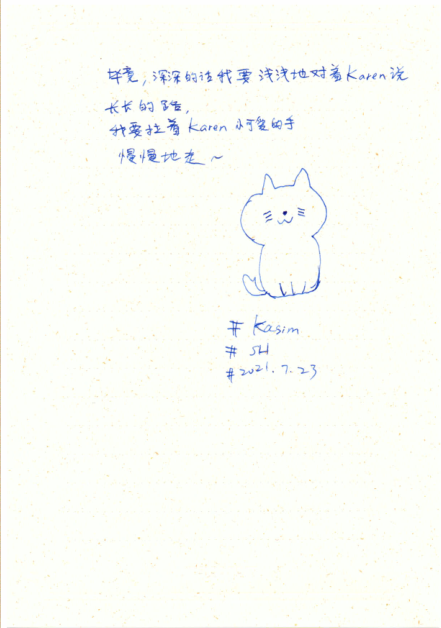 毕竟,深深的话我要浅浅地对着Karen说
长长的路,
我要拉着Karen小可爱的手
慢慢地走~
# Kasim
# SH
# 2021.7.23